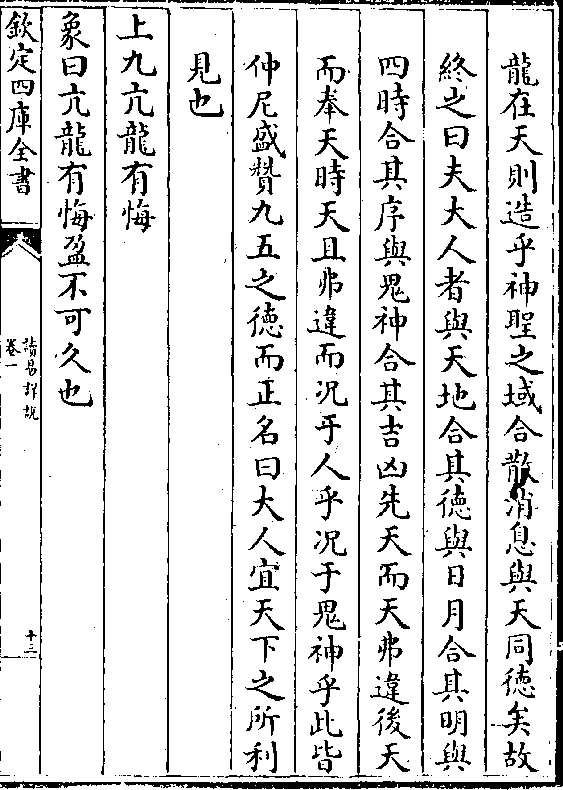 龍在天則造乎神聖之域合散消息與天同徳矣故
終之曰夫大人者與天地合其徳與日月合其明與
四時合其序與鬼神合其吉凶先天而天弗違後天
而奉天時天且弗違而况于人乎况于鬼神乎此皆
仲尼盛贊九五之徳而正名曰大人宜天下之所利
見也
上九亢龍有悔
象曰亢龍有悔盈不可久也
欽定四庫全書
讀易詳說
卷一
十三